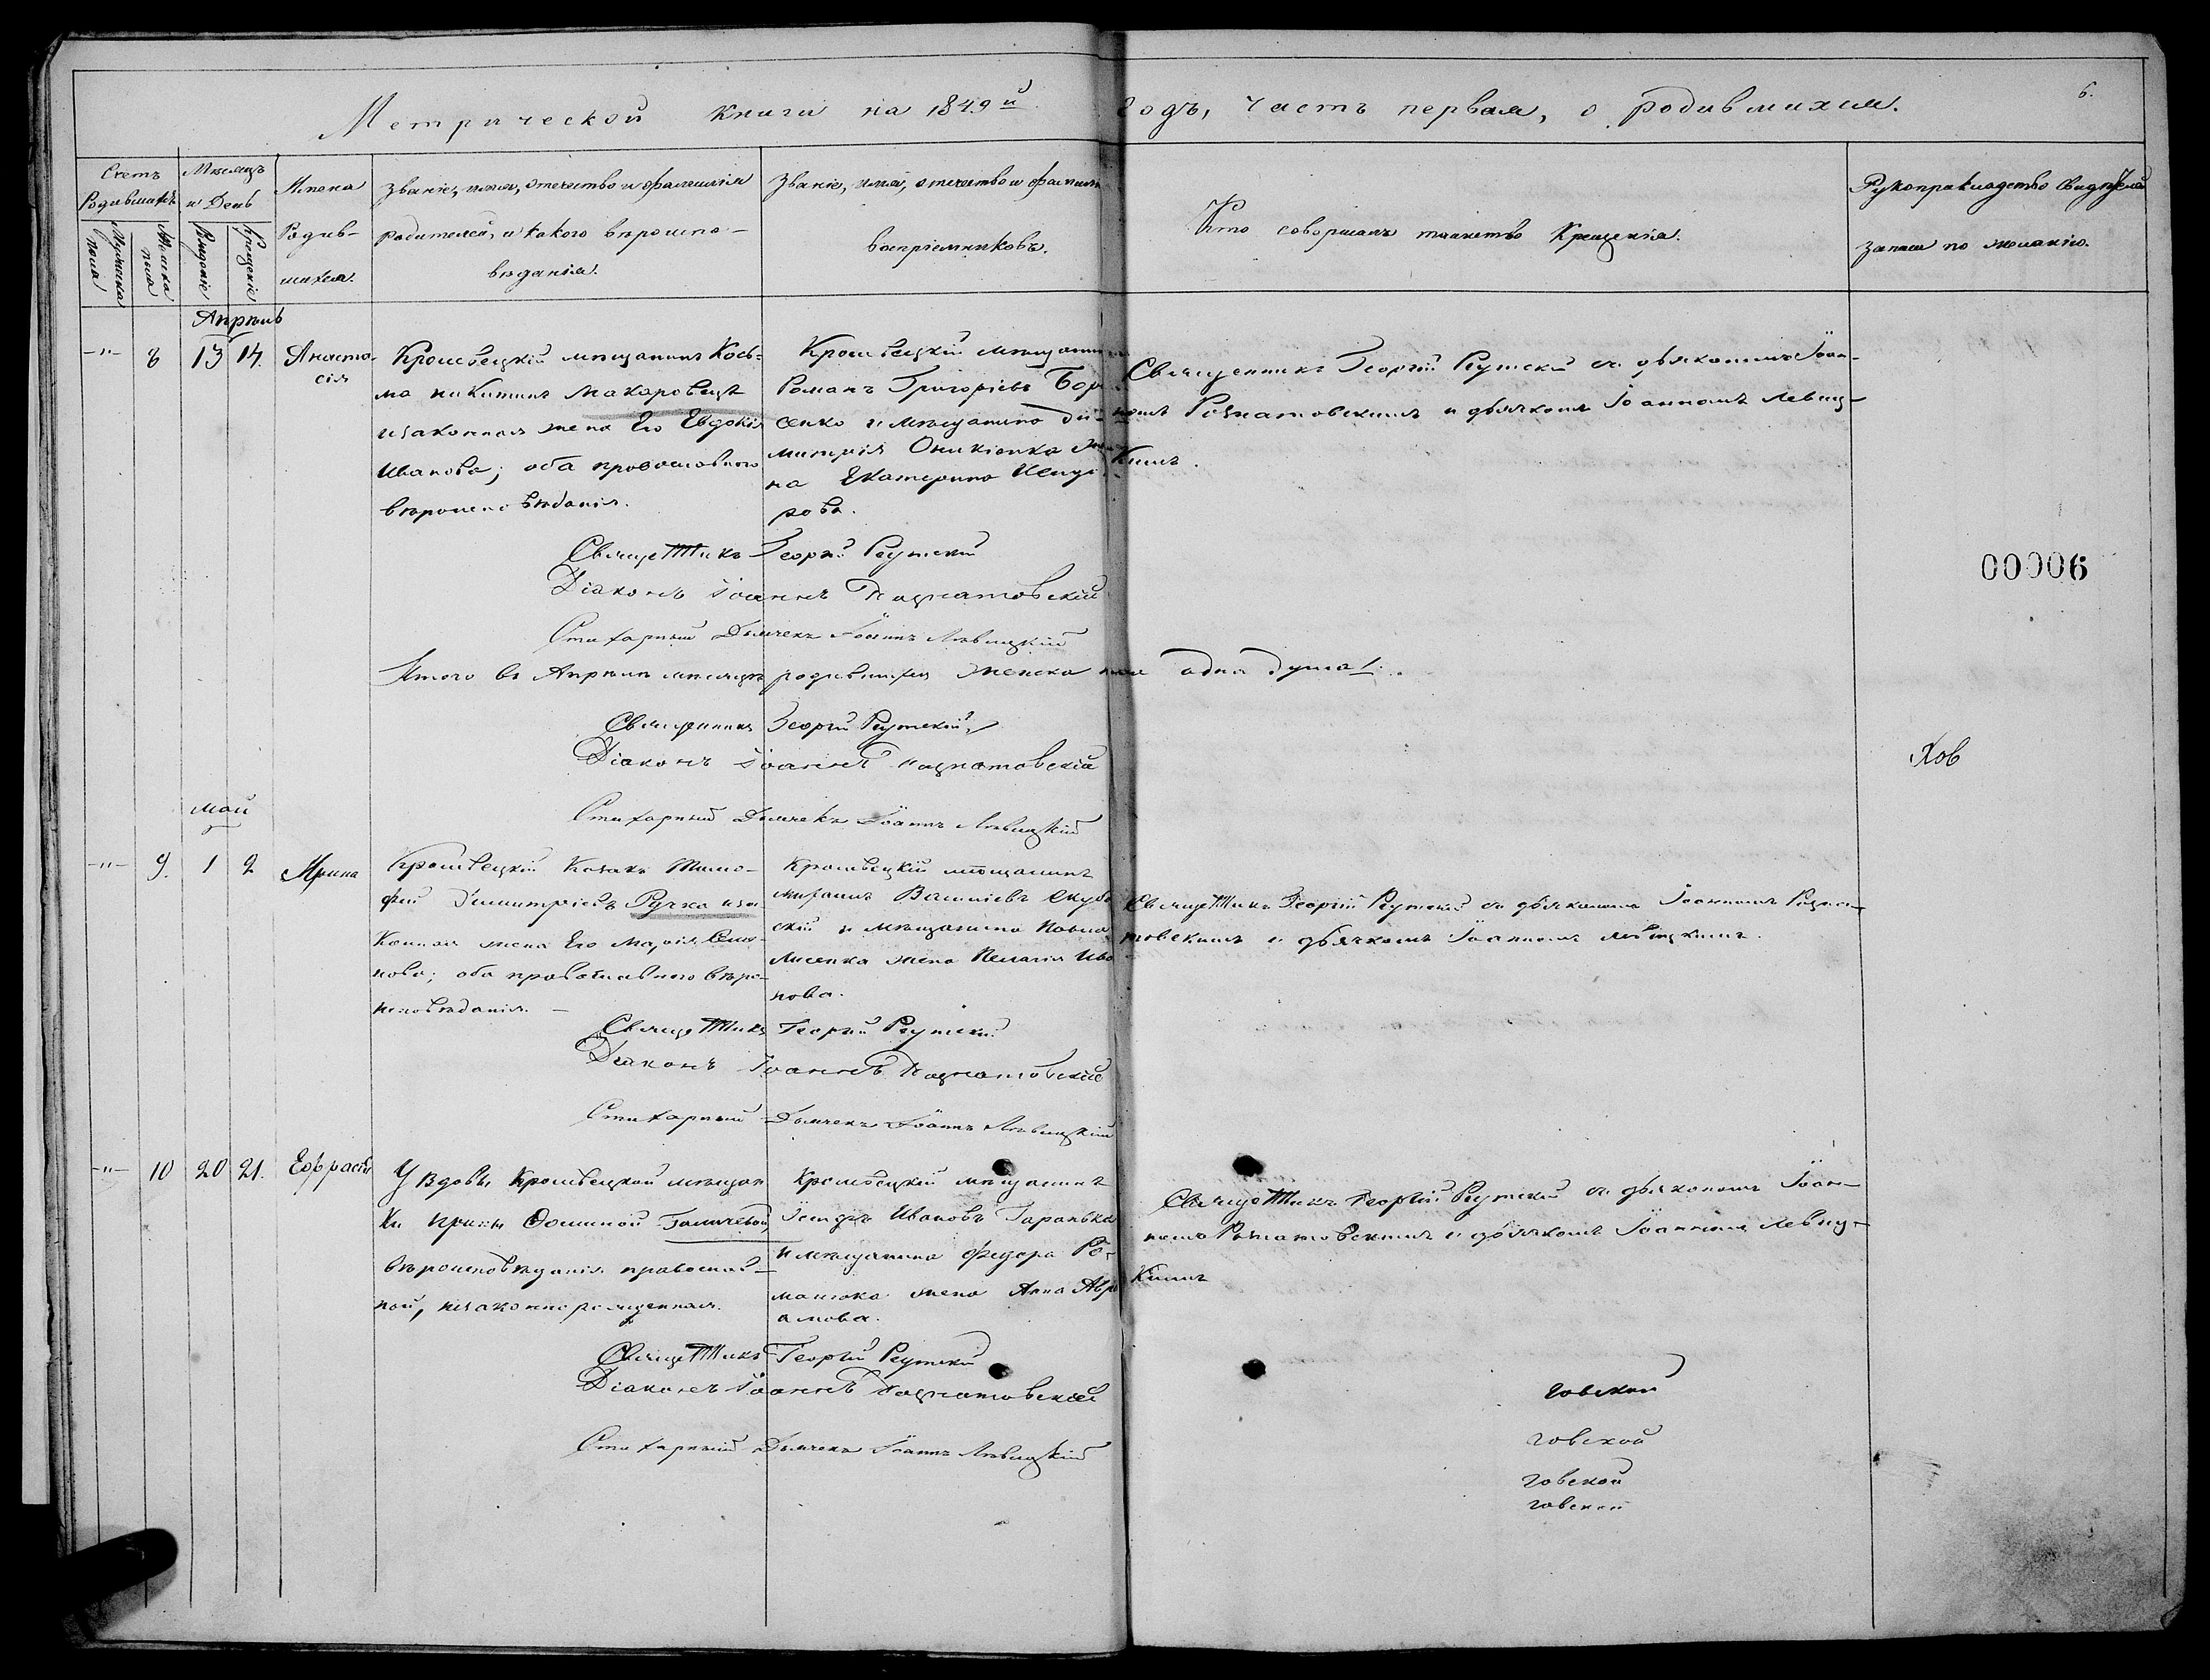 Метрической книги на 1849й годъ, часть первая, о родившихся.
6.
Счетъ Родившихся
Мужеска пола
Женска пола
Мѣсяцъ и День
Рожденіе
Крещеніе
Имена
Родив-
шихся.
Званіе, имя, отечество и фамилія
родителей, и какого вѣроиспо-
вѣданія.
Званіе, имя, отечество и фамилія
воспріемниковъ.
Кто совершалъ таинство Крещенія.
Рукоприкладство свидѣтелей
записи по желанію.
Апрѣль
-"- 8 13 14. Анаста-
сія
Кролевецкій мѣщанинъ Кось-
ма Никитинъ Макаровецъ
и законная жена Его Евдокія
Иванова; оба православнаго
вѣроисповѣданія.
Кролевецкій мѣщанинъ
Романъ Григоріевъ Бори-
сенко и мѣщанина Ди-
митрія Оникіенка же-
на Екатерина
рова.
Священникъ Георгій Реутскій съ діякономъ Іоан-
номъ Рознатовскимъ и дьячкомъ Іоанномъ Левиц-
кимъ.
Священникъ Георгій Реутскій
Діаконъ Іоаннъ Рознатовскій
Стихарный Дьячекъ Іоаннъ Лѣвицкій
00006
Итого въ Апрѣлѣ мѣсяцѣ родившихся женска пола одна душа 1.
Священникъ Георгій Реутскій
Діаконъ Іоаннъ Рознатовскій
Стихарный Дьячекъ Іоаннъ Лѣвицкій
Хов
Май
-"- 9. 1 2 Ирина
Кролевецкій Козакъ Тимо-
фей Димитріевъ Ручка и за-
конная жена Его Марія Симо-
нова; оба православнаго вѣро-
исповѣданія.
Кролевецкій мѣщанинъ
Михаилъ Василіевъ Скуб
скій и мѣщанина Павла
Лисенка жена Пелагія Ива-
нова.
Священникъ Георгій Реутскій съ діякономъ Іоанномъ Розна-
товскимъ и дьячкомъ Іоанномъ Левицкимъ.
Священникъ Георгій Реутскій
Діаконъ Іоаннъ Рознатовскій
Стихарный Дьячекъ Іоаннъ Лѣвицкій
-"- 10 20 21. Ефрасія
У вдовы Кролевецкой мѣщан
ки Ирины Фоминой Галичевой,
вѣроисповѣданія православ-
ной, незаконно рожденная.
Кролевецкій мѣщанинъ
Исидръ Ивановъ Гаранька
и мѣщанина Федора Ро-
манюка жена Анна Авра-
амова.
Священникъ Георгій Реутскій съ діякономъ Іоан-
номъ Рознатовскимъ и дьячкомъ Іоанномъ Левиц-
кимъ
Священникъ Георгій Реутскій
Діаконъ Іоаннъ Рознатовскій
Стихарный Дьячекъ Іоаннъ Лѣвицкій
говской
говской
говской
говской